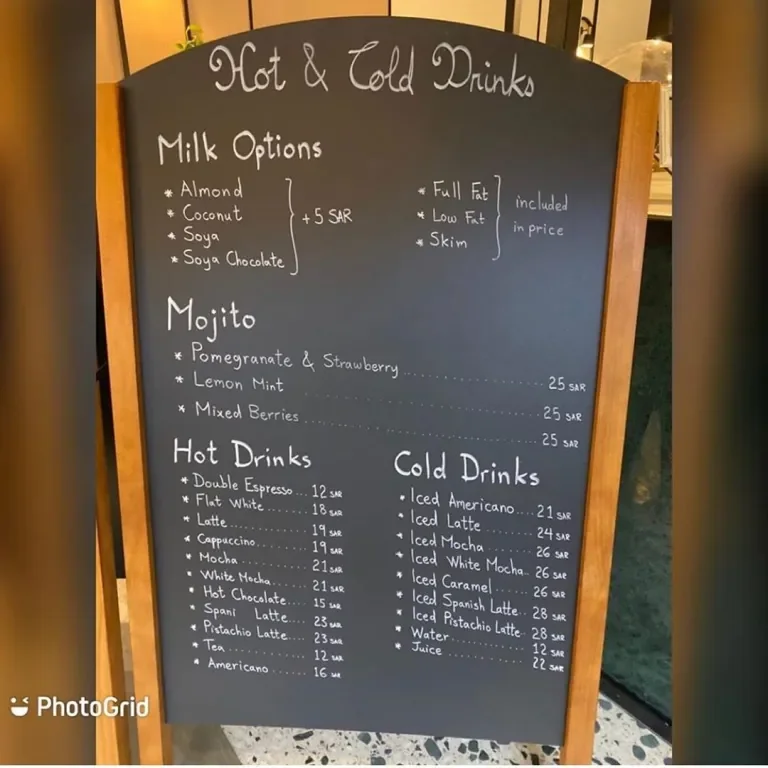 Hot & Cold Drinks
Milk Options
* Almond
* Coconut
* Soya
* Soya Chocolate
+5 SAR
* Full Fat
* Low Fat
* Skim
included
in price
Mojito
* Pomegranate & Strawberry.................... 25 SAR
* Lemon Mint .................... 25 SAR
* Mixed Berries .................... 25 SAR
Hot Drinks
* Double Espresso... 12 SAR
* Flat White....... 18 SAR
* Latte............ 19 SAR
* Cappuccino....... 19 SAR
* Mocha............ 21 SAR
* White Mocha...... 21 SAR
* Hot Chocolate.... 15 SAR
* Spani Latte... 23 SAR
* Pistachio Latte... 23 SAR
* Tea.............. 12 SAR
* Americano...... 16 SAR
Cold Drinks
* Iced Americano.... 21 SAR
* Iced Latte ....... 24 SAR
* Iced Mocha ....... 26 SAR
* Iced White Mocha.. 26 SAR
* Iced Caramel...... 26 SAR
* Iced Spanish Latte.. 28 SAR
* Iced Pistachio Latte.. 28 SAR
* Water............ 12 SAR
* Juice............ 22 SAR
PhotoGrid